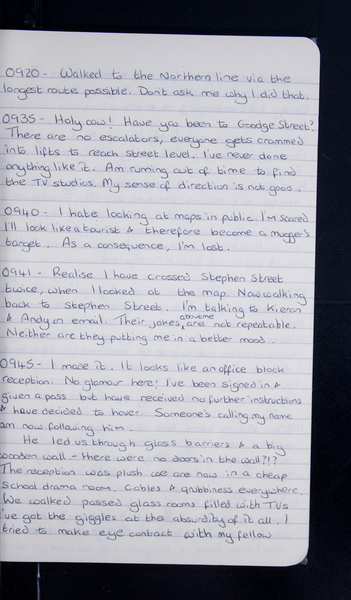 0920 - Walked to the Northern line via the
longest route possible. Don't ask me why I did that.
0935 - Holy cow! Have you been to Goodge Street?
There are no escalators, everyone gets crammed
into lifts to reach street level. I've never done
anything like it. Am running out of time to find
the TV studios. My sense of direction is not good.
0940 - I hate looking at maps in public. I'm scared
I'll look like a tourist & therefore become a mugger's
target. As a consequence, I'm lost.
0941 - Realise I have crossed Stephen Street
twice, when I looked at the map. Now walking
back to Stephen Street. I'm talking to Kieron
& Andy on email. Their jokes about me are not repeatable.
Neither are they putting me in a better mood.
0945 - I made it. It looks like an office block
reception. No glamour here! I've been signed in &
given a pass but have received no further instructions
& have decided to hover. Someone's calling my name
am now following him.
He led us through glass barriers & a big
wooden wall - there were no doors in the wall?!?
The reception was plush we are now in a cheap
school drama room. Cables & grubbiness everywhere.
We walked passed glass rooms filled with TVs
I've got the giggles at the absurdity of it all. I
tried to make eye contact with my fellow